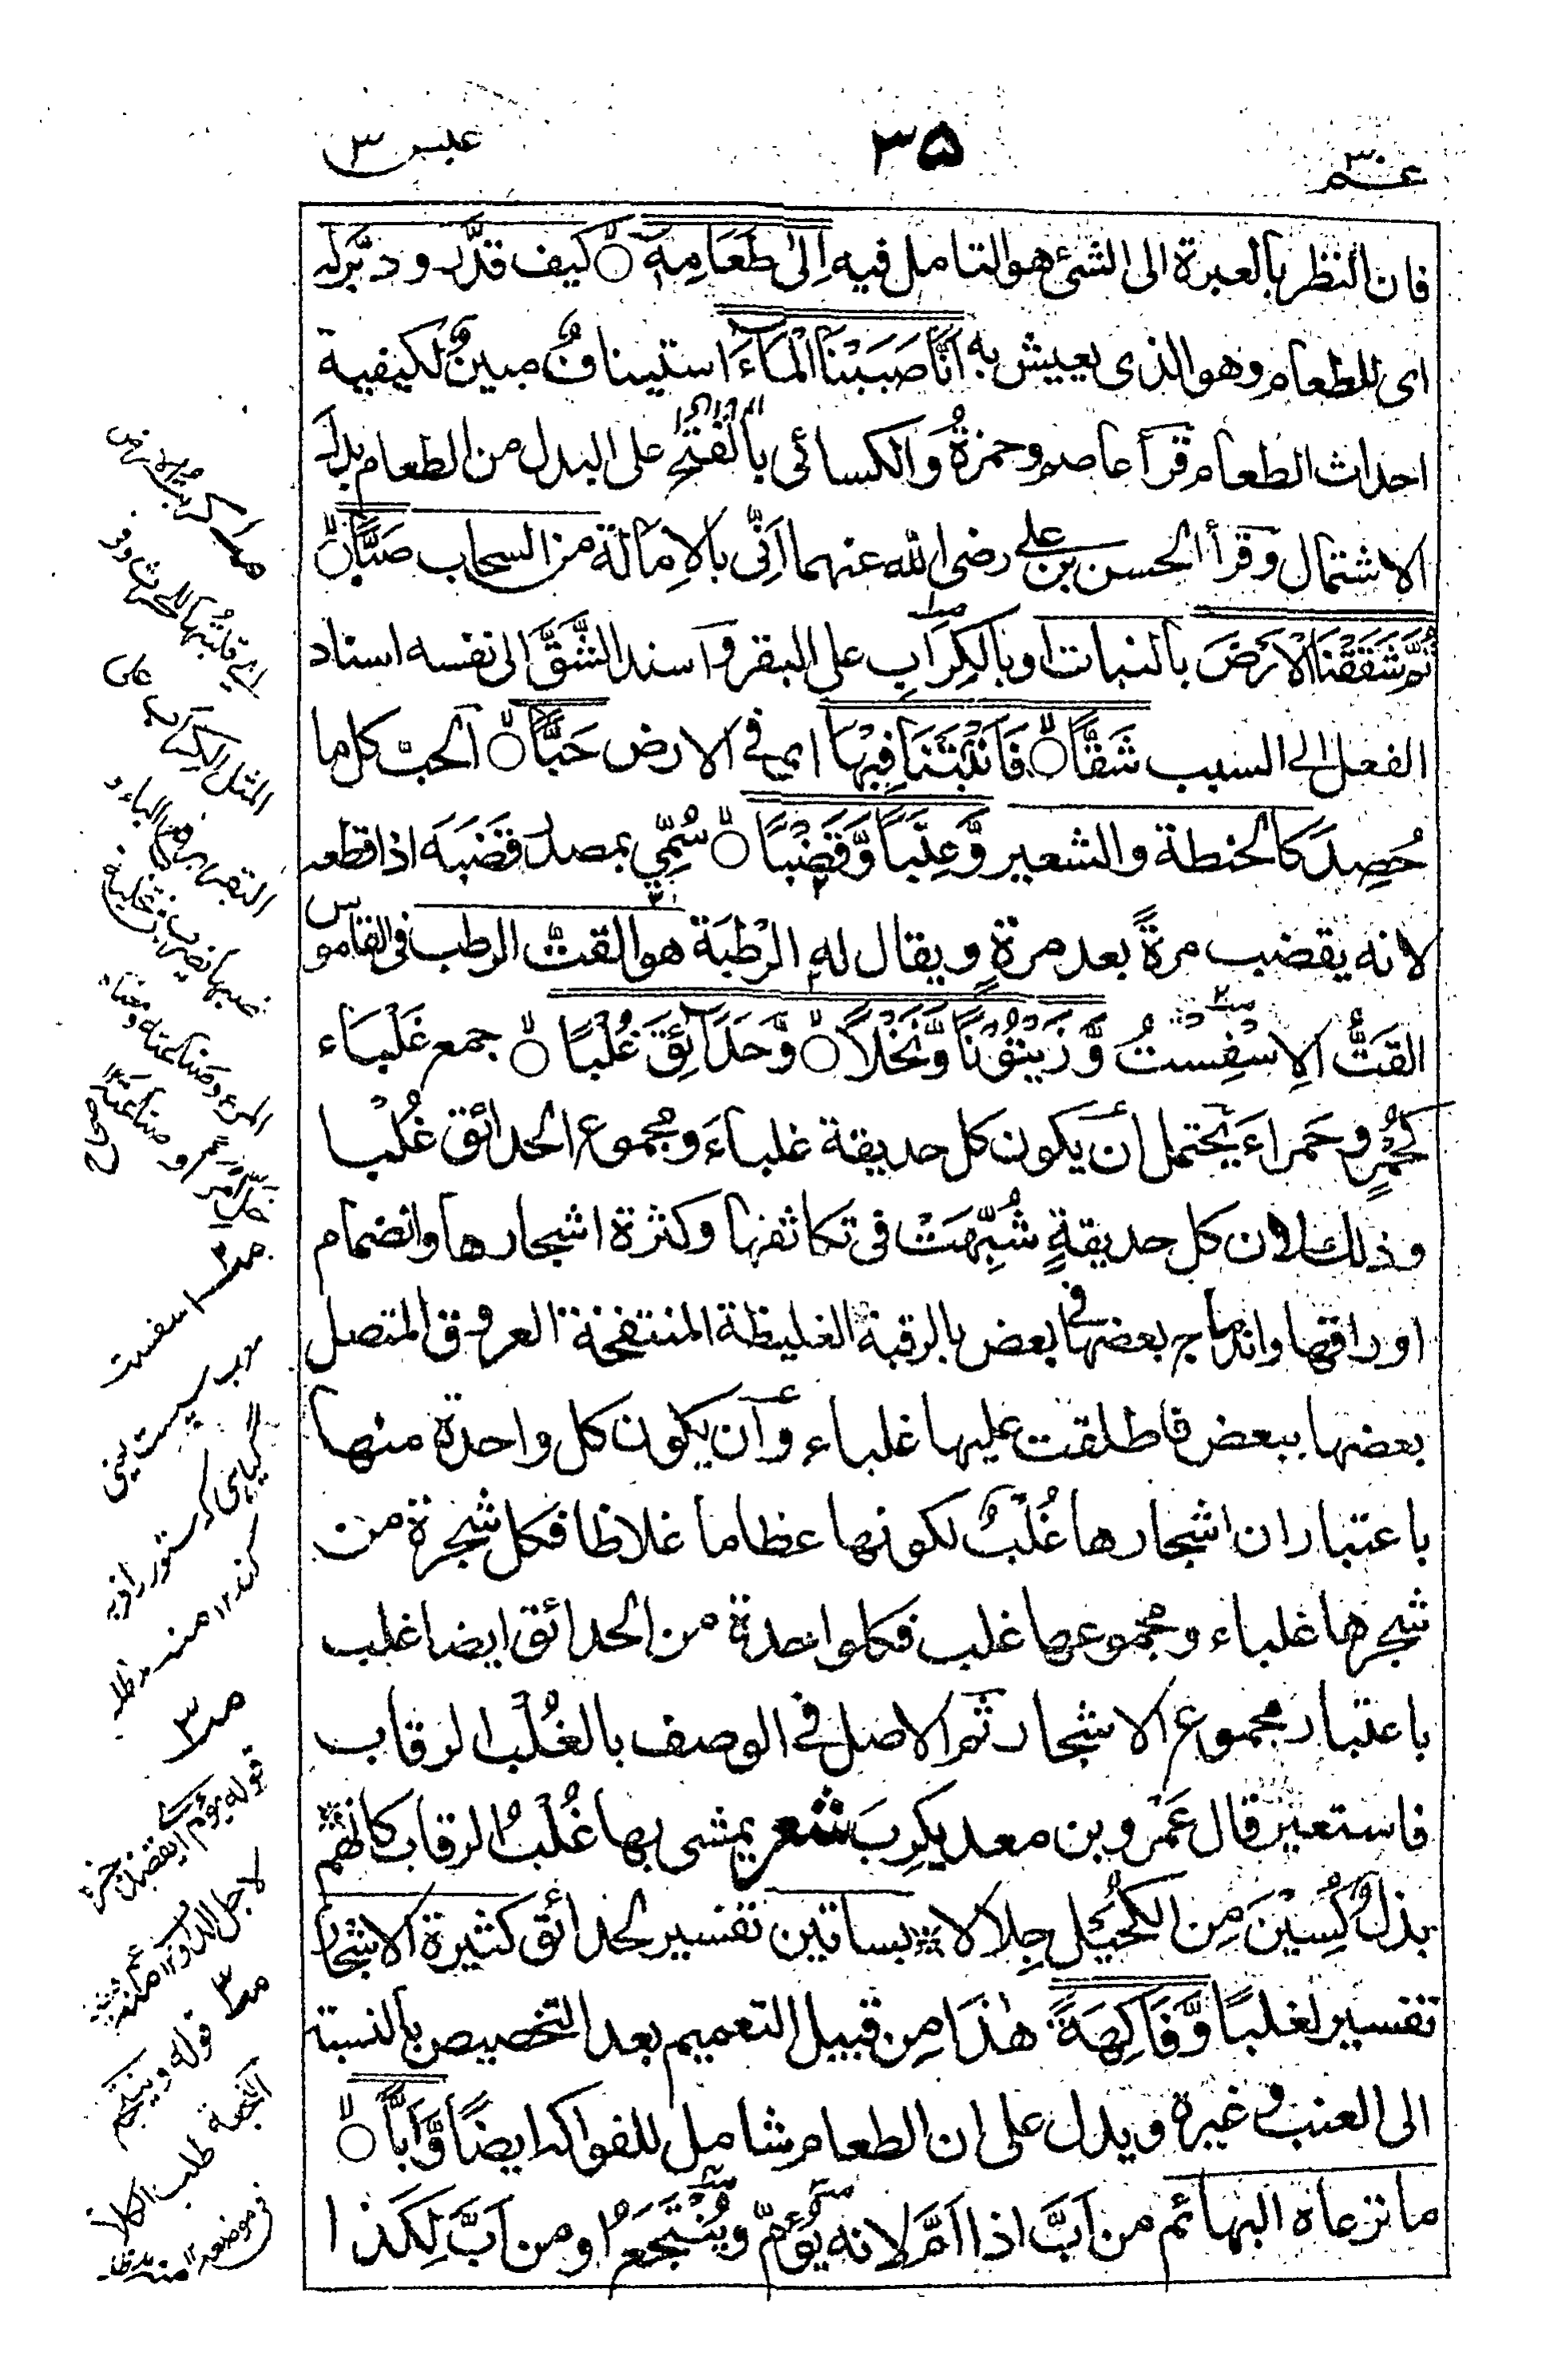 عبس ٣
٣۵
عم ٣٠
فان النظر بالعبرة الى الشئ هو التامل فيه اِلىٰ طَعَامِهٖۤ كيف قدَّر ودبَّرله
اى للطعام وهو الذى يعيش به اَنَّا صَبَبْنَا الْمَآءَ استيناف مبينٌ لكيفية
احداث الطعام قرأ عاصم وحمزةُ والكسائى بالفتح على البدل من الطعام بدل
الاشتمال وقرأ الحسن بن على رضى الله عنهما اَنّٰى بالاِمالة من السحاب صَبًّا
ثُمَّ شَقَقْنَا الْاَرْضَ بالنبات او بالكِرَابِ على البقر واسند الشَّقَّ الى نفسه اسناد
الفعل الى السبب شَقًّا فَاَنْۢبَتْنَا فِيْهَا اى فى الارض حَبًّا الحبّ كل ما
حُصِدَ كالحنطة والشعير وَّعِنَبًا وَّقَضْبًا سُمِّى بمصدر قَضَبَه اذا قطعه
لانه يقضب مرةً بعد مرةٍ ويقال له الرَّطْبَة هو القتّ الرطب فى القاموس
القَتُّ الاِسْفِسْتُ وَّزَيْتُوْنًا وَّنَخْلًا وَّحَدَآئِقَ غُلْبًا جمع غَلْبَاء
كحُمْرٍ وحَمراءَ يحتمل أن يكون كل حديقة غلباءَ ومجموع الحدائق غُلْبا
وذلك لان كل حديقةٍ شُبِّهَتْ فى تكاثفها وكثرة اشجارها وانضمام
اوراقها واندماج بعضها فى بعض بالرقبة الغليظة المنتفخة العروق المتصل
بعضها ببعض فاطلقت عليها غلباء وأن يكون كل واحدة منها
باعتبار ان اشجارها غُلْبٌ لكونها عظاما غلاظا فكل شجرة من
شجرها غلباء ومجموعها غلب فكل واحدة من الحدائق ايضا غلب
باعتبار مجموع الاشجار ثم الاصل فى الوصف بالغُلْب الرقاب
فاستعير قال عَمْرو بن معديكرِبَ شعر يمشى بها غُلْبُ الرقاب كانهم
بذلٌ كُسِيْنَ مِن الكُحَيْل جِلالا بساتين تفسير لحدائق كثيرة الاشجار
تفسير لغلبًا وَّفَاكِهَةً هٰذَا مِن قبيل التعميم بعد التخصيص بالنسبة
الى العنب وغيره ويدل على ان الطعام شامل للفواكه ايضًا وَّاَبًّا
ما ترعاه البهائم من اَبَّ اذا اَمَّ لانه يُؤَمّ ويُنْتَجَعُ او من اَبَّ لِكَذا
صـ٢ اسفست
معرب سپست يعنى
صـ٣
قوله يؤم اى يقصد جزه
لاجل الدواب ١٢ منه
صـ٤ قوله وينتجع
النجعة طلب الكلأ
فى موضعه ١٢ منه مد ظله